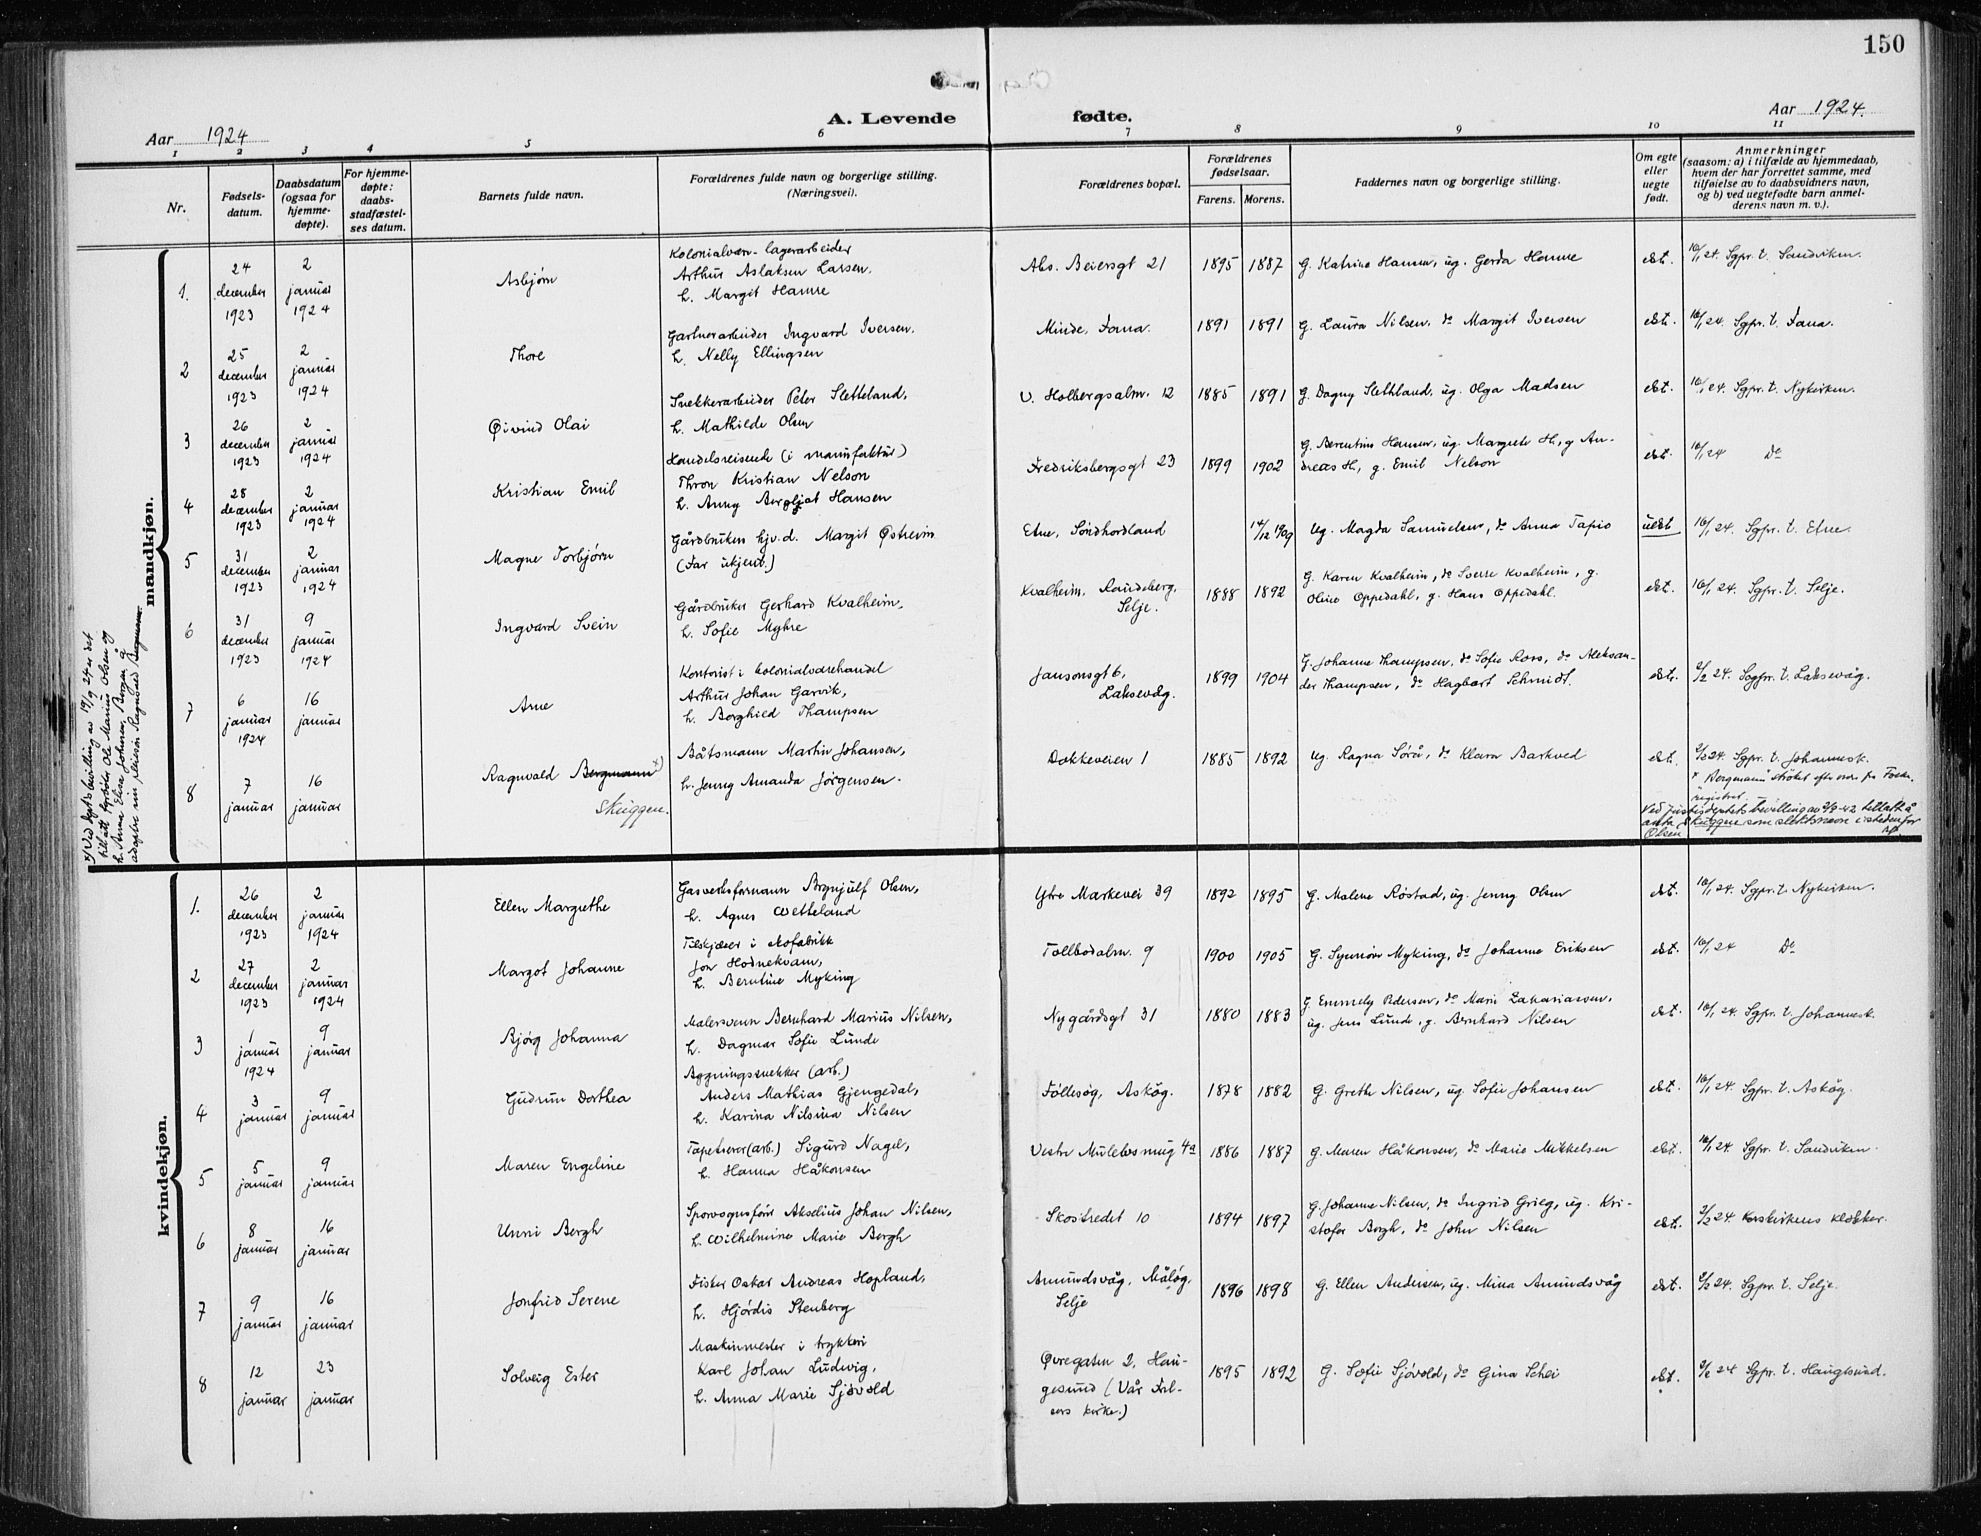 150
Aar 1924
A. Levende fødte.
Aar 1924.
1 2 3 4 5 6 7 8 9 10 11
Nr.
Fødsels-
datum.
Daabsdatum
(ogsaa for
hjemme-
døpte).
For hjemme-
døpte:
daabs-
stadfæstel-
ses datum.
Barnets fulde navn.
Forældrenes fulde navn og borgerlige stilling.
(Næringsvei).
Forældrenes bopæl.
Forældrenes
fødselsaar.
Farens. Morens.
Faddernes navn og borgerlige stilling.
Om egte
eller
uegte
født.
Anmerkninger
(saasom: a) i tilfælde av hjemmedaab,
hvem der har forrettet samme, med
tilføielse av to daabsvidners navn,
og b) ved uegtefødte barn anmel-
derens navn m. v.).
mandkjøn.
1.
24
december
1923
2
januar
1924
Asbjørn
Kolonialvare-lagerarbeider
Arthur Aslaksen Larsen,
h. Margit Hamre
Abs. Beiersgt 21
1895 1887
G. Katrine Hamre, ug. Gerda Hamre
ekt.
16/1 24. Sgpr. t. Sandviken.
2
25
december
1923
2
januar
1924
Thore
Gartnerarbeider Ingvard Iversen,
h. Nelly Ellingsen
Minde, Fana.
1891 1891
G. Laura Nilsen, do Margit Iversen
ekt.
16/1 24. Sgpr. t. Fana.
3
26
december
1923
2
januar
1924
Øivind Olai
Snekkerarbeider Peter Sletteland,
h. Mathilde Olsen
V. Holbergsalm. 12
1885 1891
G. Dagny Slethland, ug. Olga Madsen
ekt.
16/1 24. Sgpr. t. Nykirken.
4
28
december
1923
2
januar
1924
Kristian Emil
Handelsreisende (i manufaktur)
Thron Kristian Nelson
h. Anny Bergljot Hansen
Fredriksbergsgt 23
1899 1902
G. Berentine Hansen, ug. Margrete H., g An-
dreas H, g. Emil Nelson
ekt.
16/1 24 Do
5
31
december
1923
2
januar
1924
Magne Torbjørn
Gårdbruker hjv. d. Margit Østreim
(Far ukjent.)
Etne, Søndhordland
14/12 1909
Ug. Magda Samuelsen, do Anna Tapio
uekt
16/1 24. Sgpr. t. Etne.
6
31
december
1923
9
januar
1924
Ingvard Svein
Gårdbruker Gerhard Kvalheim,
h. Sofie Myhre
Kvalheim, Raudeberg,
Selje.
1888 1892
G. Karen Kvalheim, do Sverre Kvalheim, g.
Oline Oppedahl, g. Hans Oppedahl.
ekt.
16/1 24. Sgpr. t. Selje.
7
6
januar
1924
16
januar
Arne
Kontorist i kolonialvarehandel
Arthur Johan Garvik,
h. Borghild Thampsen
Jansonsgt 6,
Laksevåg.
1899 1904
G. Johanne Thampsen, do Sofie Roos, do Aleksan-
der Thampsen, do Hagbart Schmidt.
ekt.
2/2 24. Sogpr. t. Laksevåg.
8
7
januar
16
januar
Ragnvald Bergmann x)
Skuggen.
Båtsmann Martin Johansen,
h. Jenny Amanda Jørgensen.
Dokkeveien 1
1885 1892
Ug. Ragna Sørå, do Klara Barkved
ekt.
2/2 24. Sgpr. t. Johannesk.
"Bergmann" strøket efter ordre fra Folke-
registret.
Ved justisdeptets bevilling av 2/9-42 tillatt å
anta Skuggen som slektsnavn i stedenfor
Olsen
x) Ved dep's bevilling av 19/9 24 er det
tillatt fyrbøter Ole Marius Olsen og
h. Anna Elisa Johnsen, Bergen, å
adoptere sin pleiesøn Ragnvald Bergmann.
kvindekjøn.
1.
26
december
1923
2
januar
1924
Ellen Margrethe
Gasverksformann Brynjulf Olsen,
h. Agnes Wetteland
Ytre Markevei 39
1892 1895
G. Malene Røstad, ug. Jenny Olsen
ekt.
16/1 24. Sgpr. t. Nykirken.
2
27
december
1923
2
januar
1924
Margot Johanne
Tilskjærer i skofabrikk
Jon Hodnekvam,
h. Berntine Myking
Tollbodalm. 9
1900 1905
G. Synnøve Myking, do Johanne Eriksen
ekt.
16/1 24 Do
3
1
januar
1924
9
januar
Bjørg Johanna
Malersvenn Bernhard Marius Nilsen,
h. Dagmar Sofie Lunde
Nygårdsgt 31
1880 1883
G Emmely Pedersen, do Marie Zakariassen,
ug. Jens Lunde, g. Bernhard Nilsen
ekt.
16/1 24. Sgpr. t. Johannesk.
4
3
januar
9
januar
Gudrun Dorthea
Bygningssnekker (arb.)
Anders Mathias Gjengedal,
h. Karina Nilsina Nilsen
Follesøg, Askøg.
1878 1882
G. Grethe Nilsen, ug. Sofie Johansen
ekt.
16/1 24. Sgpr. t. Askøy.
5
5
januar
9
januar
Maren Engeline
Tapetserer (arb.) Sigurd Nagel,
h. Hanna Håkonsen
Vestre Mulelvsmug 4a
1886 1887
G. Maren Håkonsen, do Marie Mikkelsen
ekt.
16/1 24. Sgpr. t. Sandviken.
6
8
januar
16
januar
Unni Bergh
Sporvognsfører Akselius Johan Nilsen,
h. Wilhelmine Marie Bergh
Skostredet 10
1894 1897
G. Johanne Nilsen, do Ingrid Grieg, ug. Kri-
stofer Bergh, do John Nilsen
ekt.
2/2 24. Korskirkens klokker.
7
9
januar
16
januar
Jonfrid Serene
Fisker Oskar Andreas Hopland,
h. Hjørdis Stenberg
Amundsvåg, Måløy,
Selje
1896 1898
G. Ellen Andersen, ug. Mina Amundsvåg
ekt.
2/2 24. Sgpr. t. Selje.
8
12
januar
23
januar
Solveig Ester
Maskinmester i trykkeri
Karl Johan Ludvig,
h. Anna Marie Sjøvold
Øvregaten 2, Hau-
gesund (Vår Frel-
sers kirke.)
1895 1892
G. Sofie Sjøvold, do Gina Schei
ekt.
2/2 24 Sgpr. t. Haugesund.